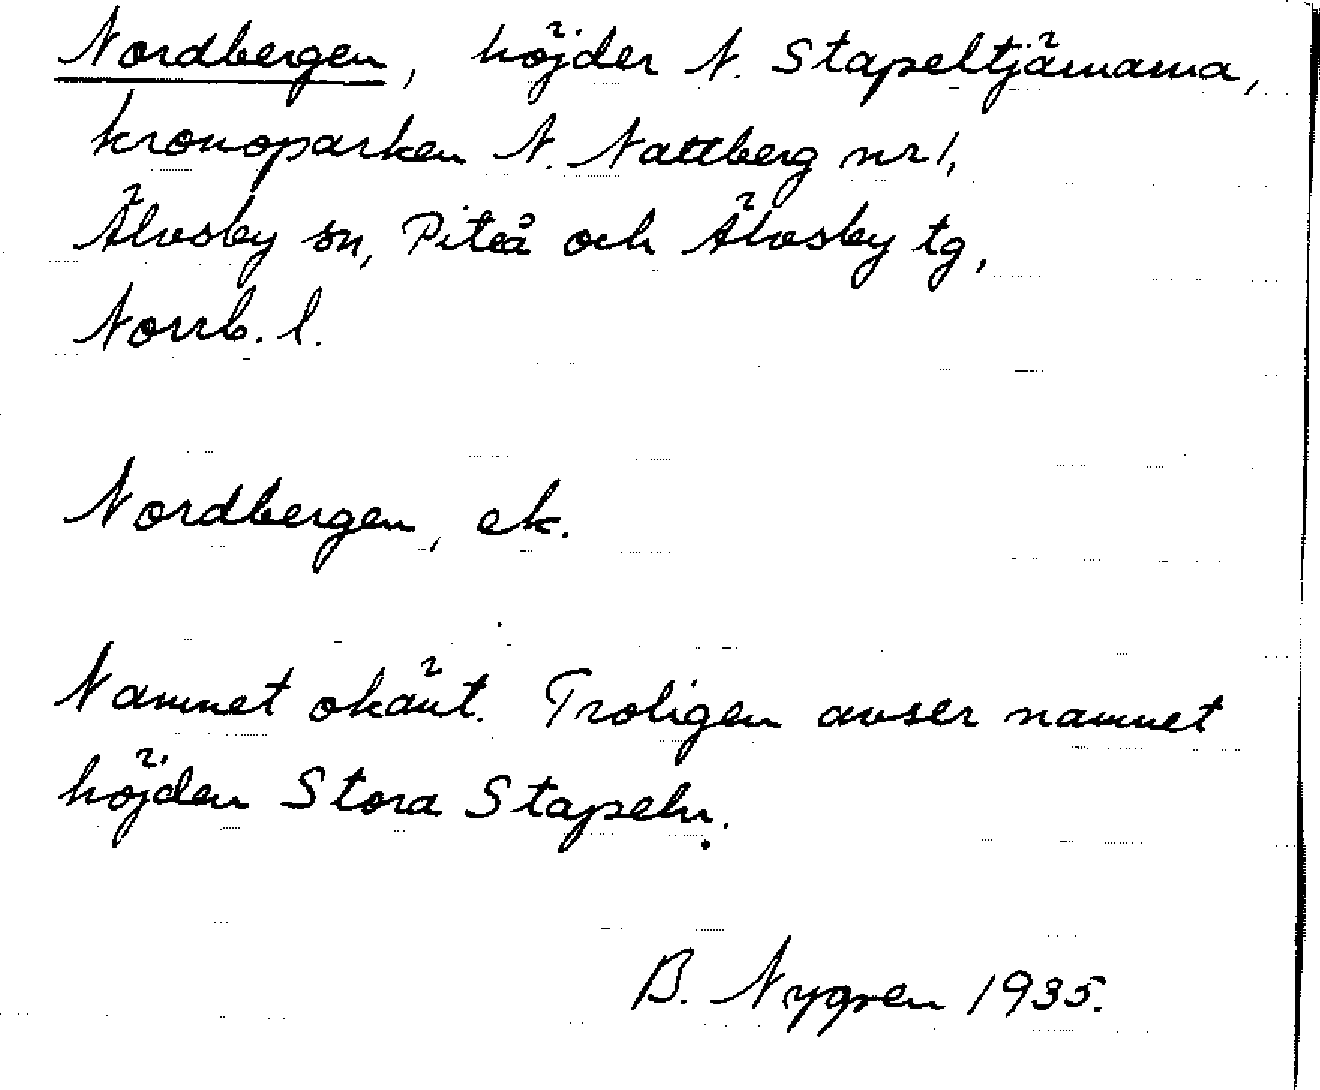 Nordbergen, höjder N. Stapeltjärnarna,
kronoparken N. Nattberg nr 1,
Älvsby sn, Piteå och Älvsby tg,
Norrb. l.
Nordbergen, ek.
Namnet okänt. Troligen avser namnet
höjden Stora Stapeln.
B. Nygren 1935.